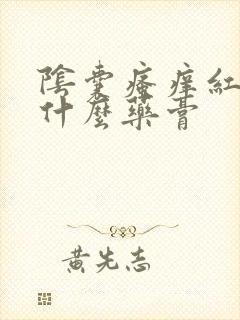 陰囊瘙癢紅
什麼藥膏
黃先志